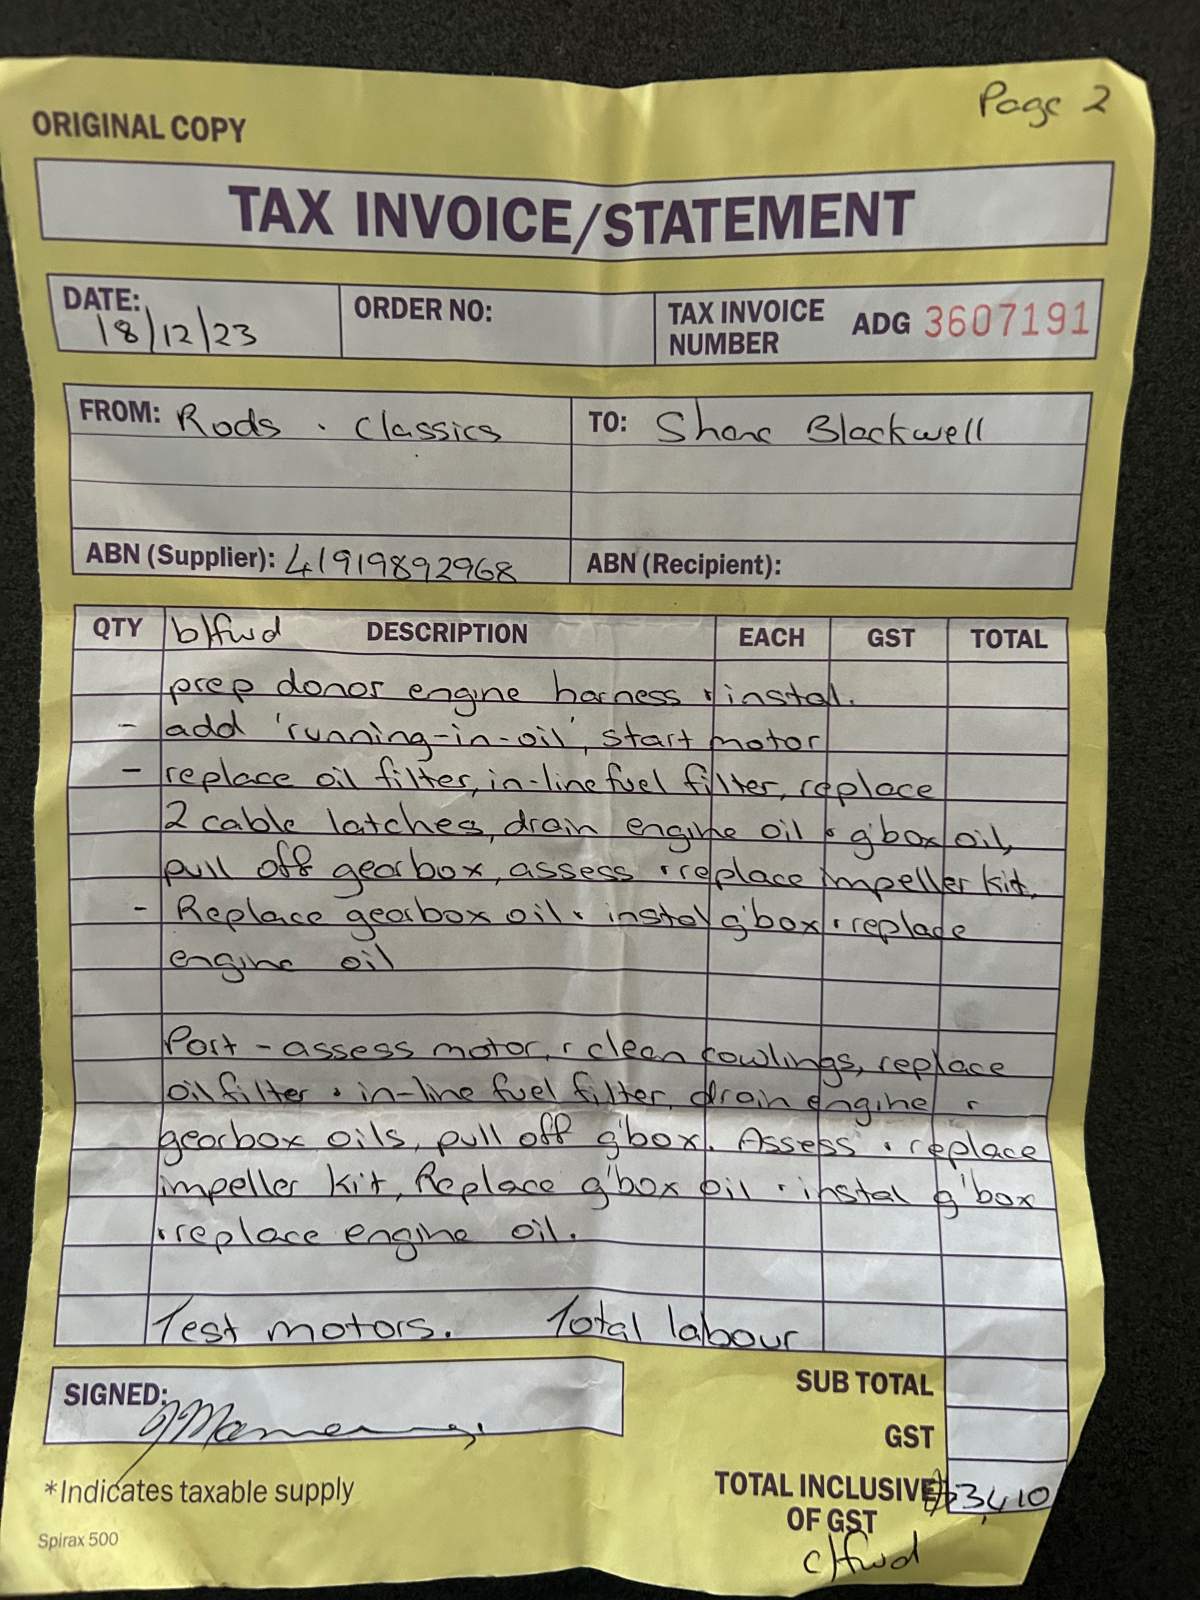 Page 2
ORIGINAL COPY
TAX INVOICE/STATEMENT
DATE: 18/12/23
ORDER NO:
TAX INVOICE NUMBER ADG 3607191
FROM: Rods . Classics
TO: Shane Blackwell
ABN (Supplier): 41919892968
ABN (Recipient):
QTY b/fwd DESCRIPTION EACH GST TOTAL
prep donor engine harness . instal.
- add 'running-in-oil', start motor
- replace oil filter, in-line fuel filter, replace
2 cable latches, drain engine oil . g'box oil,
pull off gearbox, assess . replace impeller kit.
- Replace gearbox oil . instal g'box . replace
engine oil
Port - assess motor, . clean cowlings, replace
oil filter . in-line fuel filter, drain engine .
gearbox oils, pull off g'box. Assess . replace
impeller kit, Replace g'box oil . instal g'box
. replace engine oil.
Test motors. Total labour
SUB TOTAL
SIGNED:
GST
*Indicates taxable supply
TOTAL INCLUSIVE OF GST $3,410
Spirax 500
c/fwd